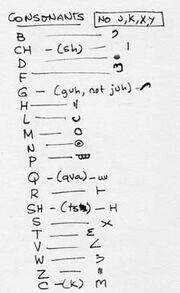 CONSONANTS NO J, K, X, Y
B
CH - (sh)
D
F
G - (guh, not juh)
H
L
M
N
P
Q - (qva)
R
SH -
S
T
V
W
Z
C - (k)